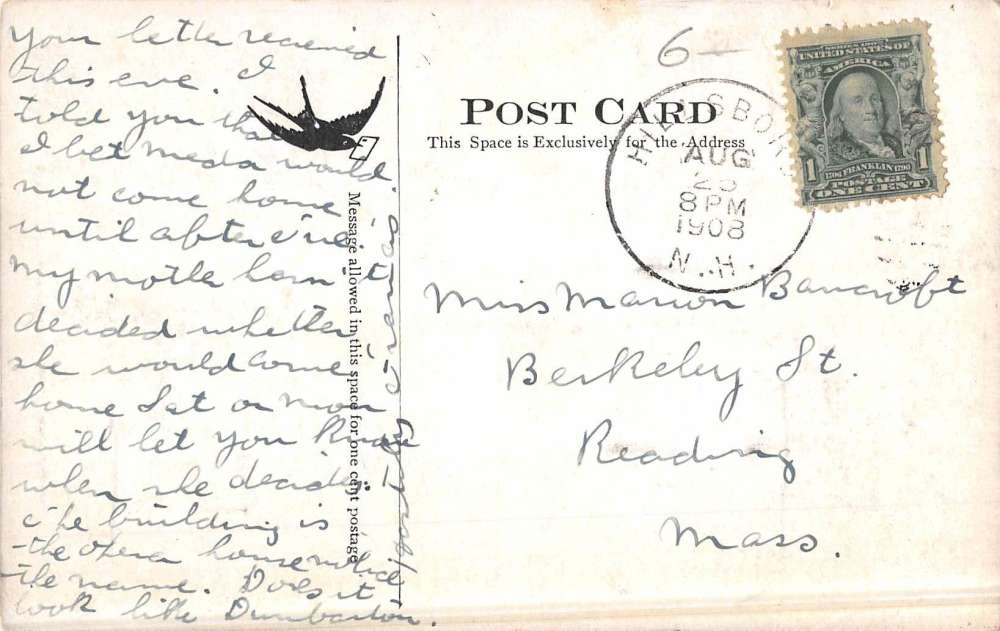 Your letter received
this eve. I
told you that
I bet Meda would
not come home
until after eve.
My mothe hasn't
decided whether
she would come
home Sat or mon
will let you know
when she decides.
The building is
the opera house notice
the name. Does it
look like Dunbarton.
Message allowed in this space for one cent postage
POST CARD
This Space is Exclusively for the Address
6—
HILLSBORO
AUG
8PM
1908
N.H.
SERIES 1902
UNITED STATES OF
AMERICA
1706 FRANKLIN 1790
POSTAGE
1 ONE CENT 1
Miss Marion Bancroft
Berkeley St.
Reading
Mass.